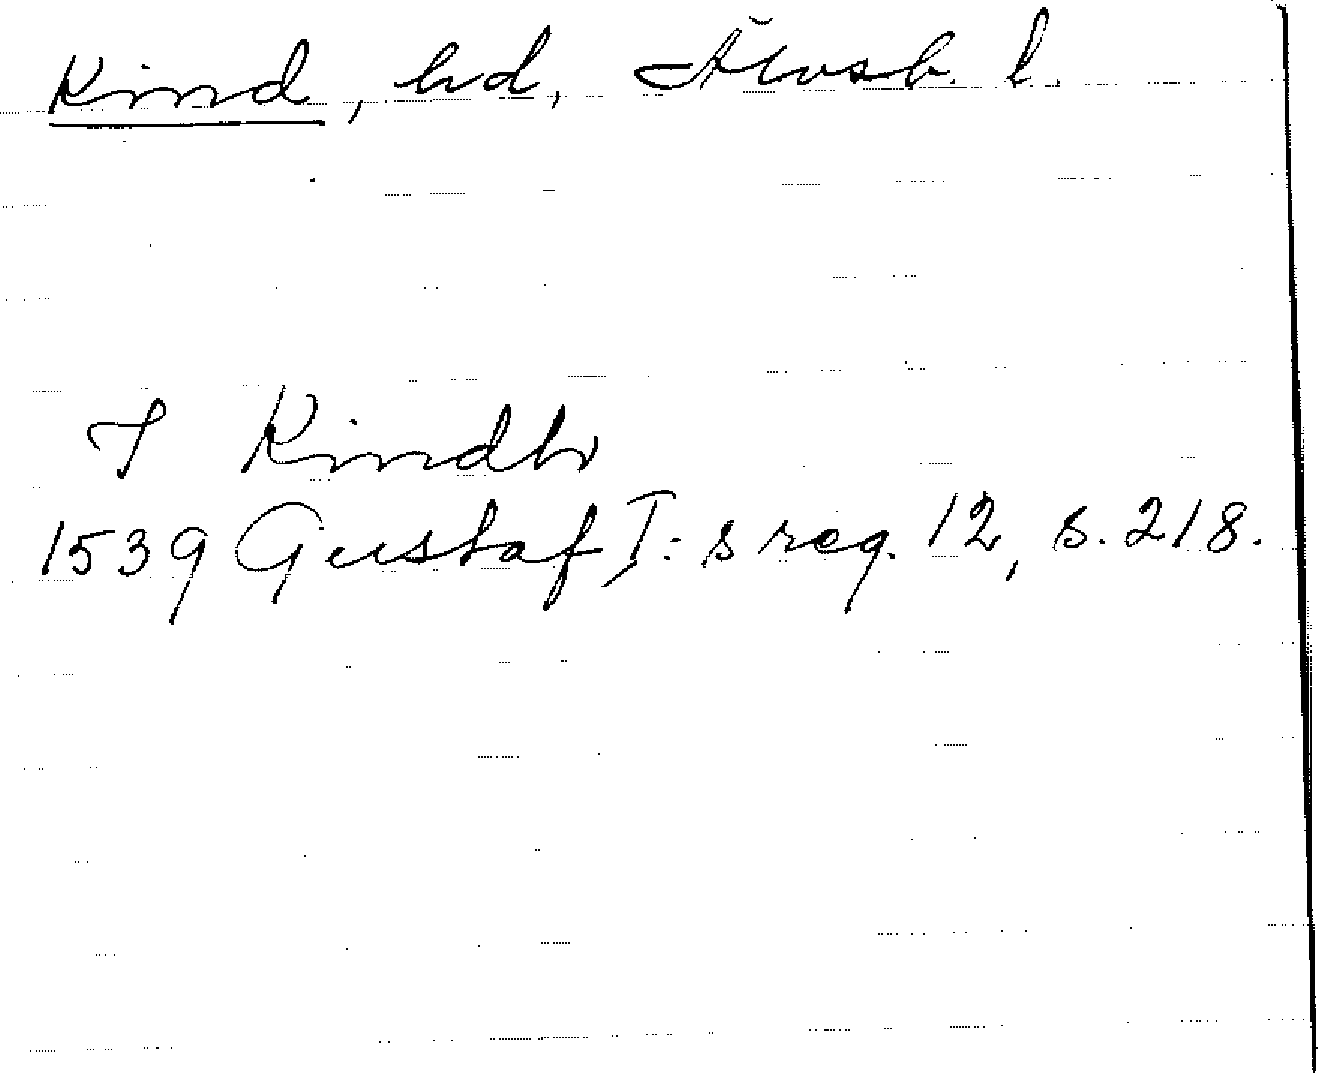 Kind, hd, Älvsb. l.
I Kindh
1539 Gustaf I:s reg. 12, s. 218.